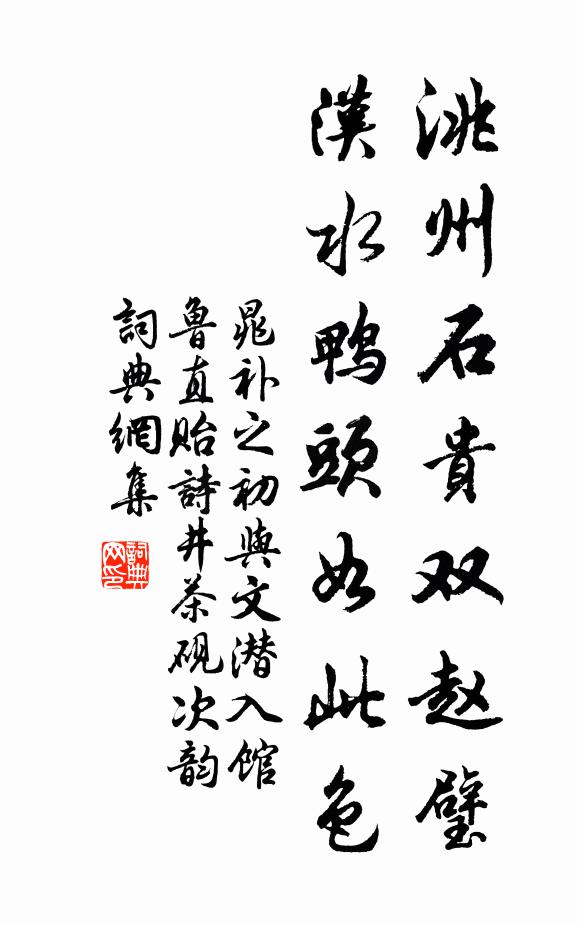 洮州石貴双赵璧
漢水鴨頭如此色
晁补之初與文潜入館
魯直貽詩井茶硯次韵
詞典網集
詞典网印